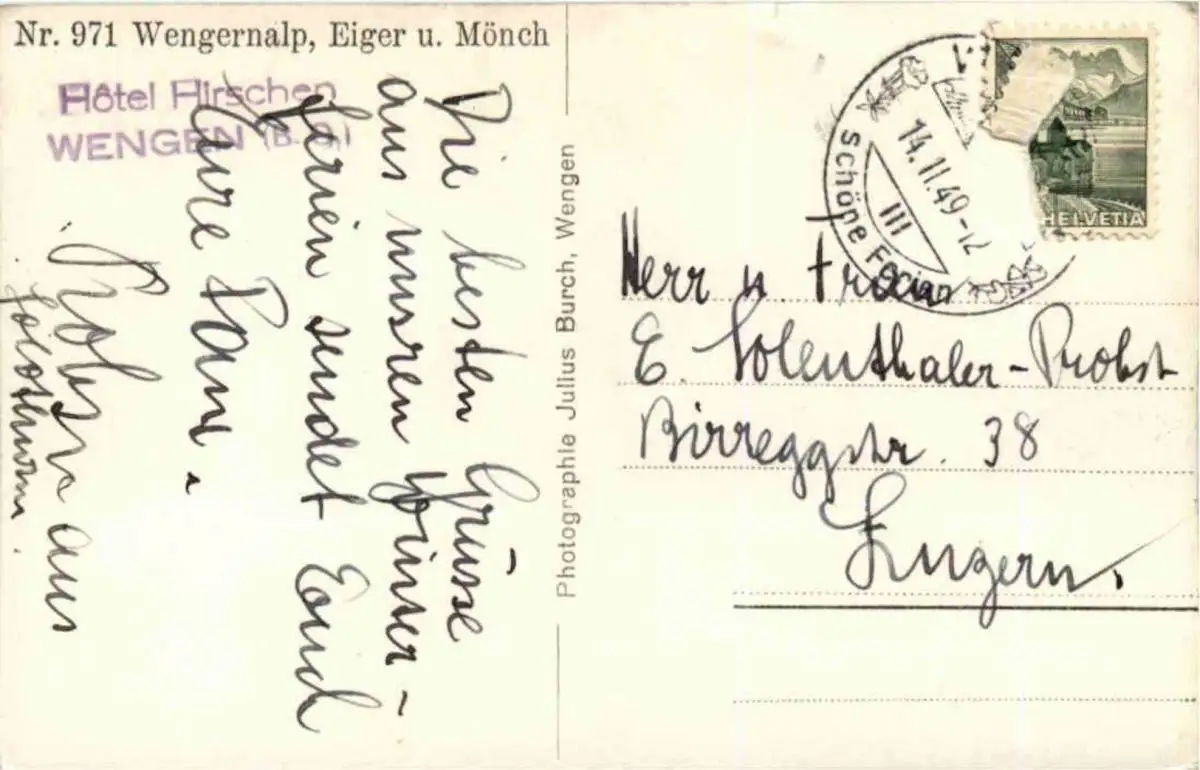 Nr. 971 Wengernalp, Eiger u. Mönch
Hôtel Hirschen
WENGEN (B. O.)
Die besten Grüsse
aus unsren Winter-
ferien sendet Euch
Eure Fam.
Probst aus
Solothurn.
Photographie Julius Burch, Wengen
14.II.49-12
schöne
HELVETIA
Herr u. Frau
E. Solenthaler-Probst
Birreggstr. 38
Luzern.